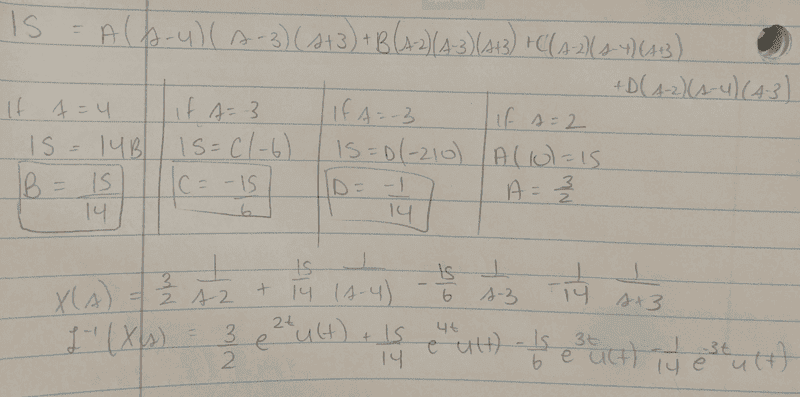 15 = A(s-4)(s-3)(s+3)+B(s-2)(s-3)(s+3)+C(s-2)(s-4)(s+3)
+D(s-2)(s-4)(s-3)
if s=4
15 = 14B
B = 15/14
if s=-3
15=C(-6)
C= -15/6
if s=-3
15=D(-210)
D= -1/14
if s=2
A(10)=15
A= 3/2
X(s) = 3/2 1/s-2 + 15/14 1/(s-4) - 15/6 1/s-3 - 1/14 1/s+3
L⁻¹(X(s) = 3/2 e^2t u(t) + 15/14 e^4t u(t) - 15/6 e^3t u(t) - 1/14 e^-3t u(t)